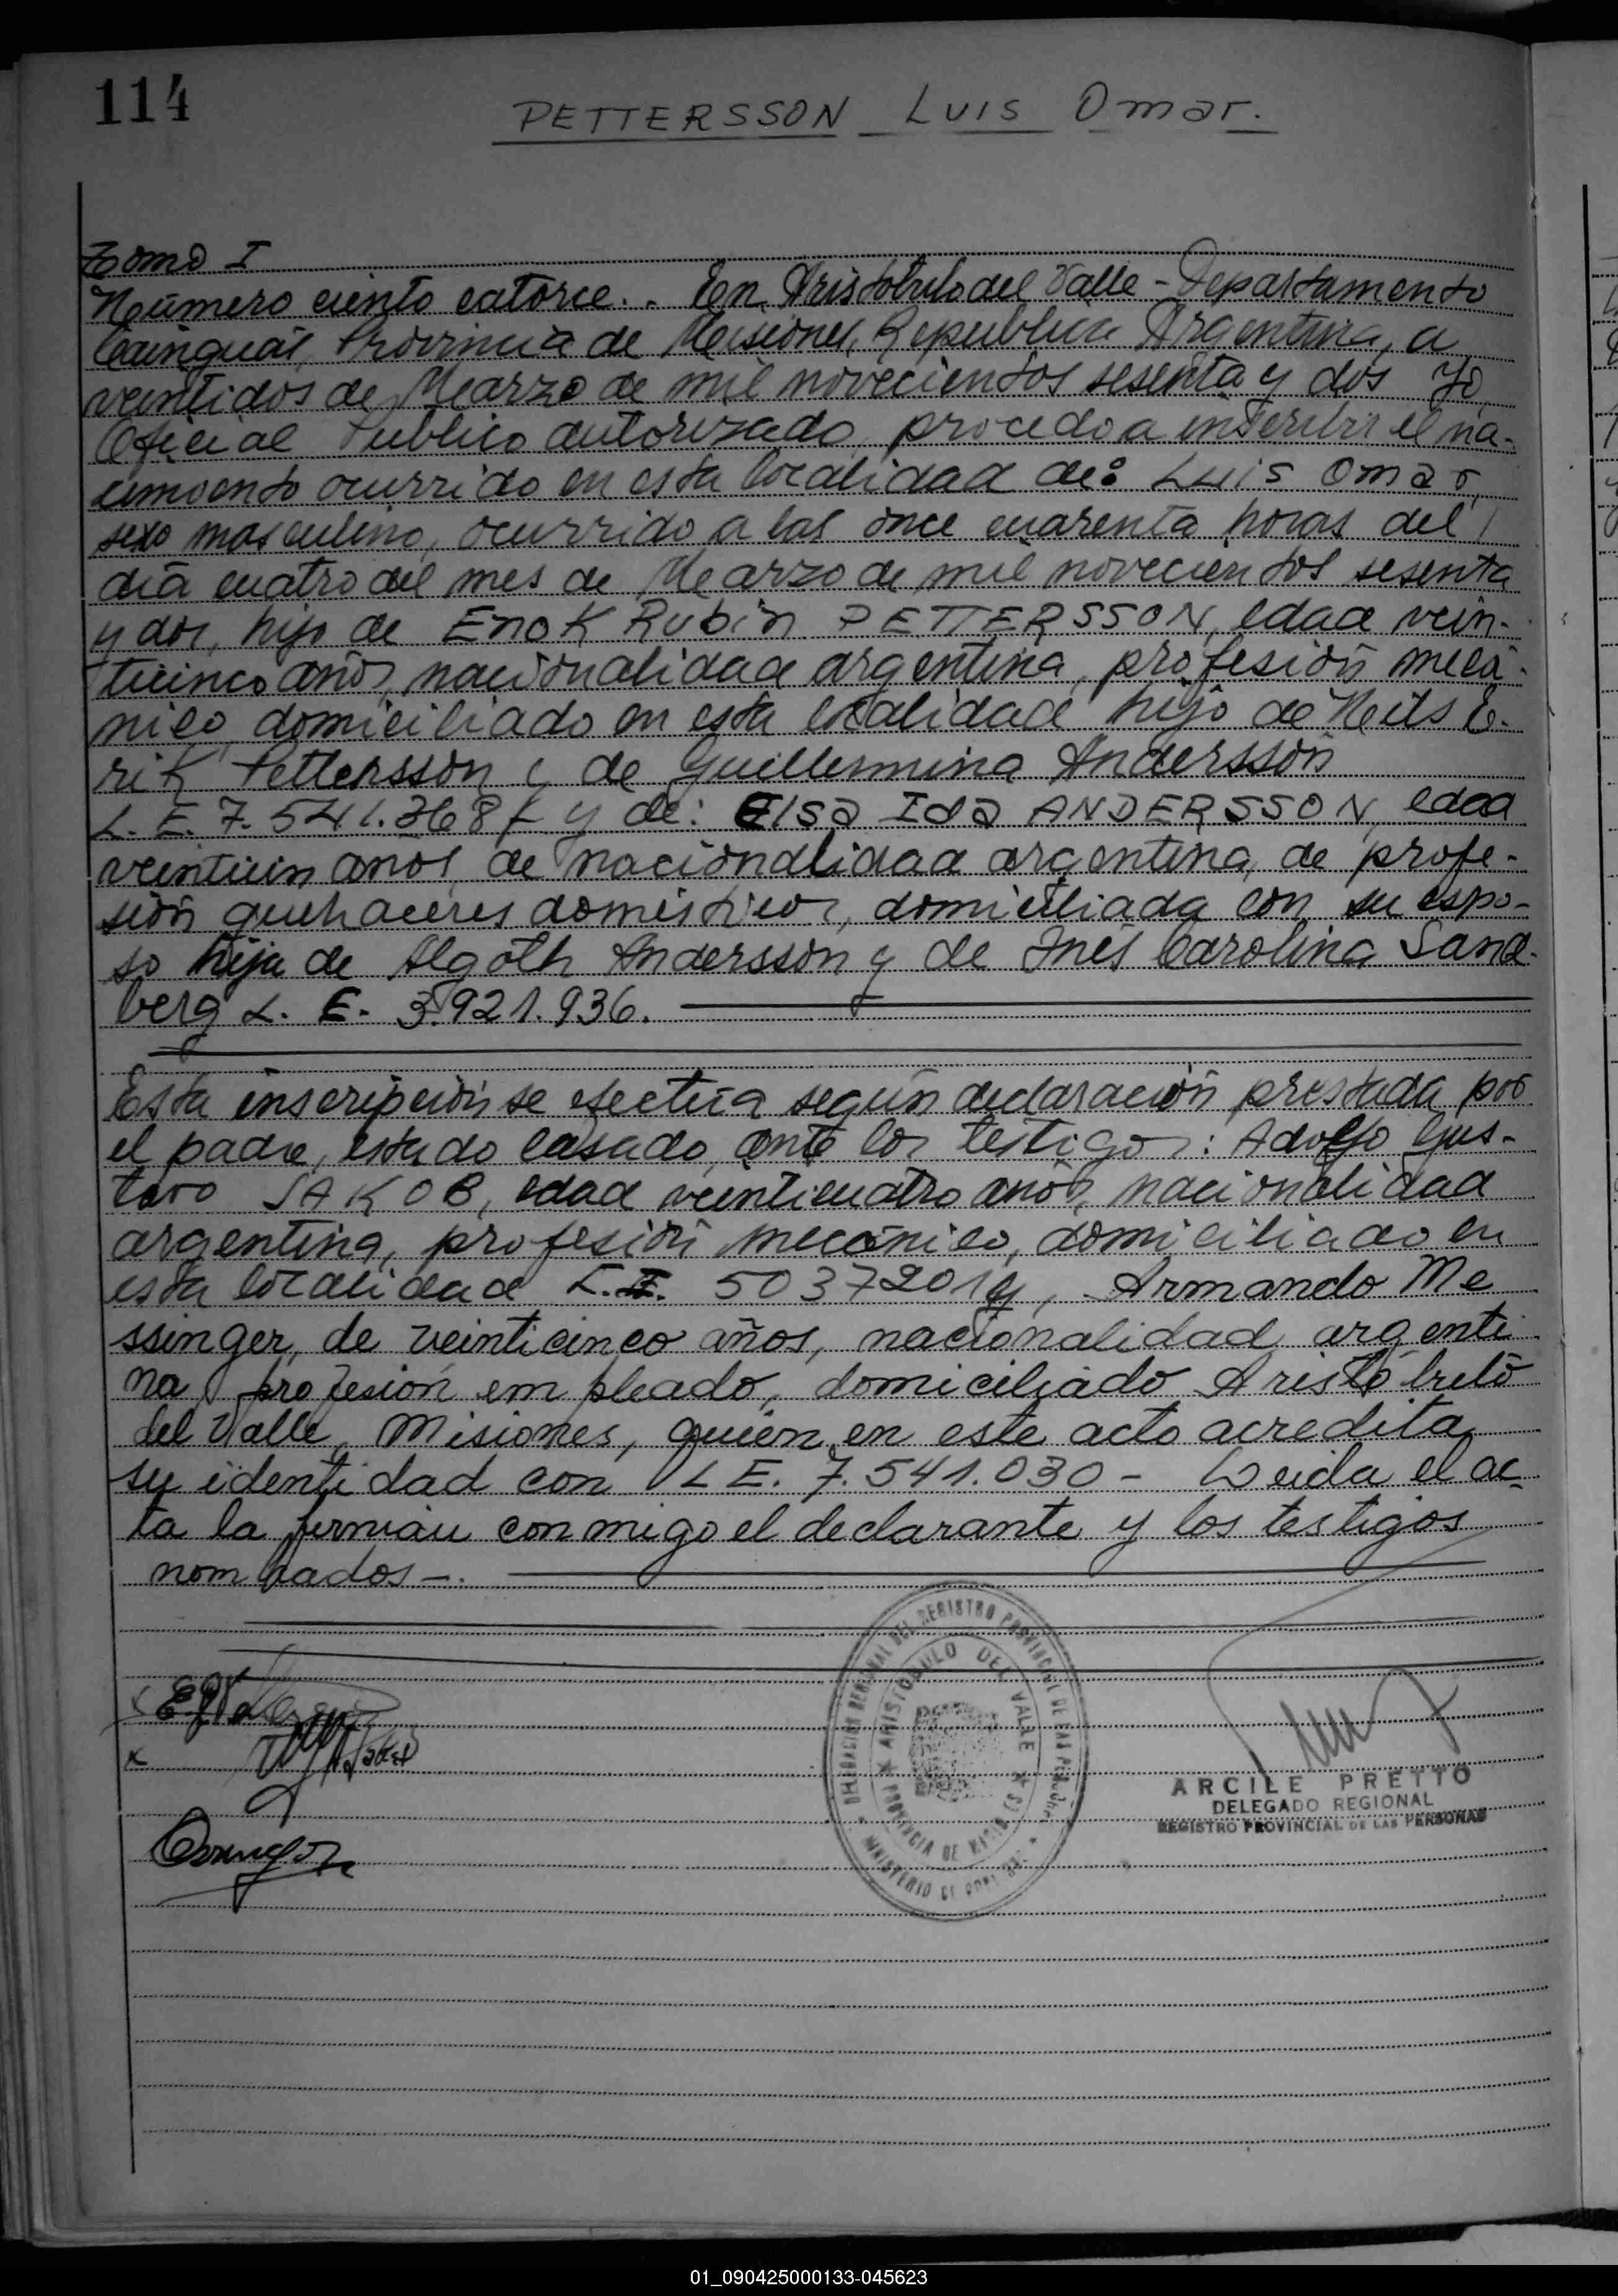 114
PETTERSSON LUIS Omar.
Tomo I
Número ciento catorce.. En Aristobulo del Valle - Departamento
Cainguás, Provincia de Misiones, Republica Argentina, a
veintidos de Marzo de mil novecientos sesenta y dos Yo,
Oficial Publico autorizado, procedo a inscribir el na-
cimiento ocurrido en esta localidad de: LUIS Omar,
sexo masculino, ocurrido a las once cuarenta horas del
día cuatro del mes de Marzo de mil novecientos sesenta
y dos, hijo de Enok Rubin PETTERSSON, edad vein-
ticinco años, nacionalidad argentina, profesión mecá-
nico, domiciliado en esta localidad hijo de Neils E-
rik Pettersson y de Guillermina Andersson
L. E. 7.541.368 y de: Elsa Ida ANDERSSON, edad
veintiun años, de nacionalidad argentina, de profe-
sión quehaceres domésticos, domiciliada con su espo-
so hija de Algoth Andersson y de Inés Carolina Sand-
berg L. E. 3.921.936.
Esta inscripción se efectúa según declaración prestada por
el padre, estado casado, ante los testigos: Adolfo Gus-
tavo JAKOB, edad veinticuatro años, nacionalidad
argentina, profesión mecánico, domiciliado en
esta localidad L.E. 5037201 y, Armando Me
ssinger, de veinticinco años, nacionalidad argenti
na, profesión empleado, domiciliado Aristóbulo
del Valle, Misiones, quien en este acto acredita
su identidad con L E. 7.541.030 - Leida el ac-
ta la firman conmigo el declarante y los testigos
nombrados -.
DELEGACION REGIONAL DEL REGISTRO PROVINCIAL DE LAS PERSONAS
ARISTOBULO DEL VALLE
PROVINCIA DE MISIONES
MINISTERIO DE
ARCILE PRETTO
DELEGADO REGIONAL
REGISTRO PROVINCIAL DE LAS PERSONAS
01_090425000133-045623